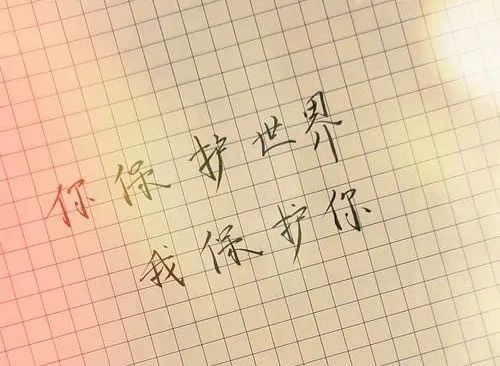 你保护世界
我保护你